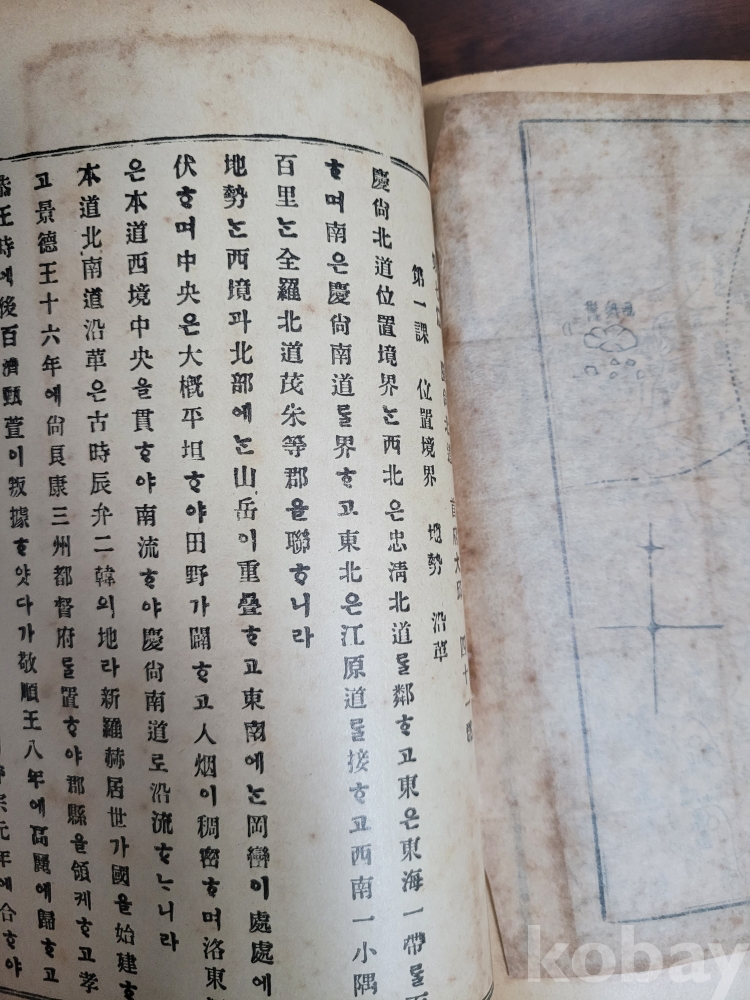 四十一
第一課 位置境界 地勢 沿革
慶尙北道位置境界ᄂᆞᆫ西北은忠淸北道ᄅᆞᆯ鄰ᄒᆞ고東은東海一帶ᄅᆞᆯ
ᄒᆞ며南은慶尙南道ᄅᆞᆯ界ᄒᆞ고東北은江原道ᄅᆞᆯ接ᄒᆞ고西南一小隅
百里ᄂᆞᆫ全羅北道茂朱等郡을聯ᄒᆞ니라
地勢ᄂᆞᆫ西境과北部에ᄂᆞᆫ山岳이重疊ᄒᆞ고東南에ᄂᆞᆫ岡巒이處處에
伏ᄒᆞ며中央은大槪平坦ᄒᆞ야田野가闢ᄒᆞ고人烟이稠密ᄒᆞ며洛東
은本道西境中央을貫ᄒᆞ야南流ᄒᆞ야慶尙南道로沿流ᄒᆞᄂᆞ니라
本道北南道沿革은古時辰弁二韓의地라新羅赫居世가國을始建ᄒᆞ
고景德王十六年에尙良康三州都督府ᄅᆞᆯ置ᄒᆞ야郡縣을領케ᄒᆞ고孝
恭王時에後百濟甄萱이叛據ᄒᆞ얏다가敬順王八年에高麗에歸ᄒᆞ고
宗元年에合ᄒᆞ야
kobay